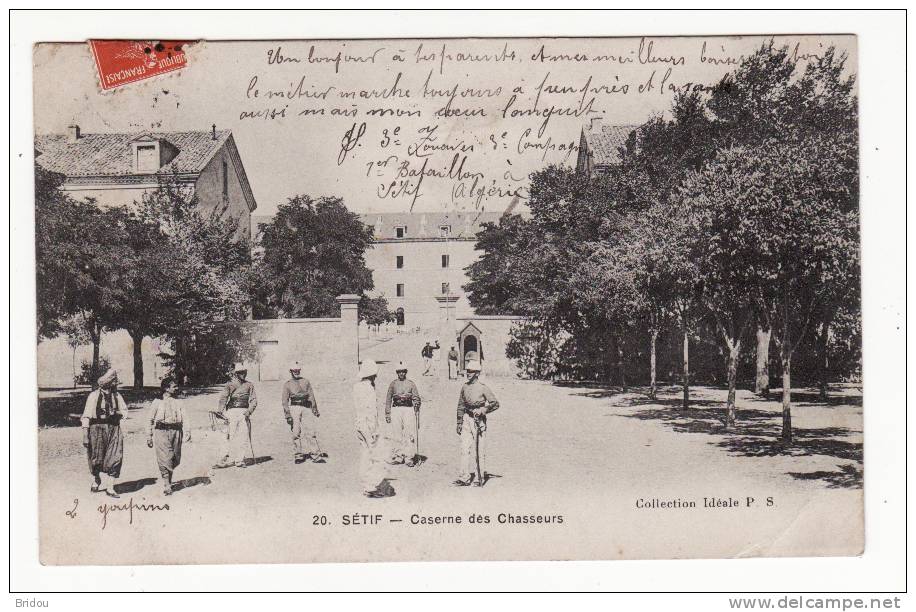 UBLIQUE FR
FRANÇAISE
Un bonjour à tes parents, et mes meilleurs baisers à toi
le métier marche toujours à peu près et la santé
aussi mais mon cœur languit.
3e Zouaves 3e Compagnie
1er Bataillon à
Sétif (Algérie
2 youpins
20. SÉTIF — Caserne des Chasseurs
Collection Idéale P. S
Bridou
http://www.delcampe.net